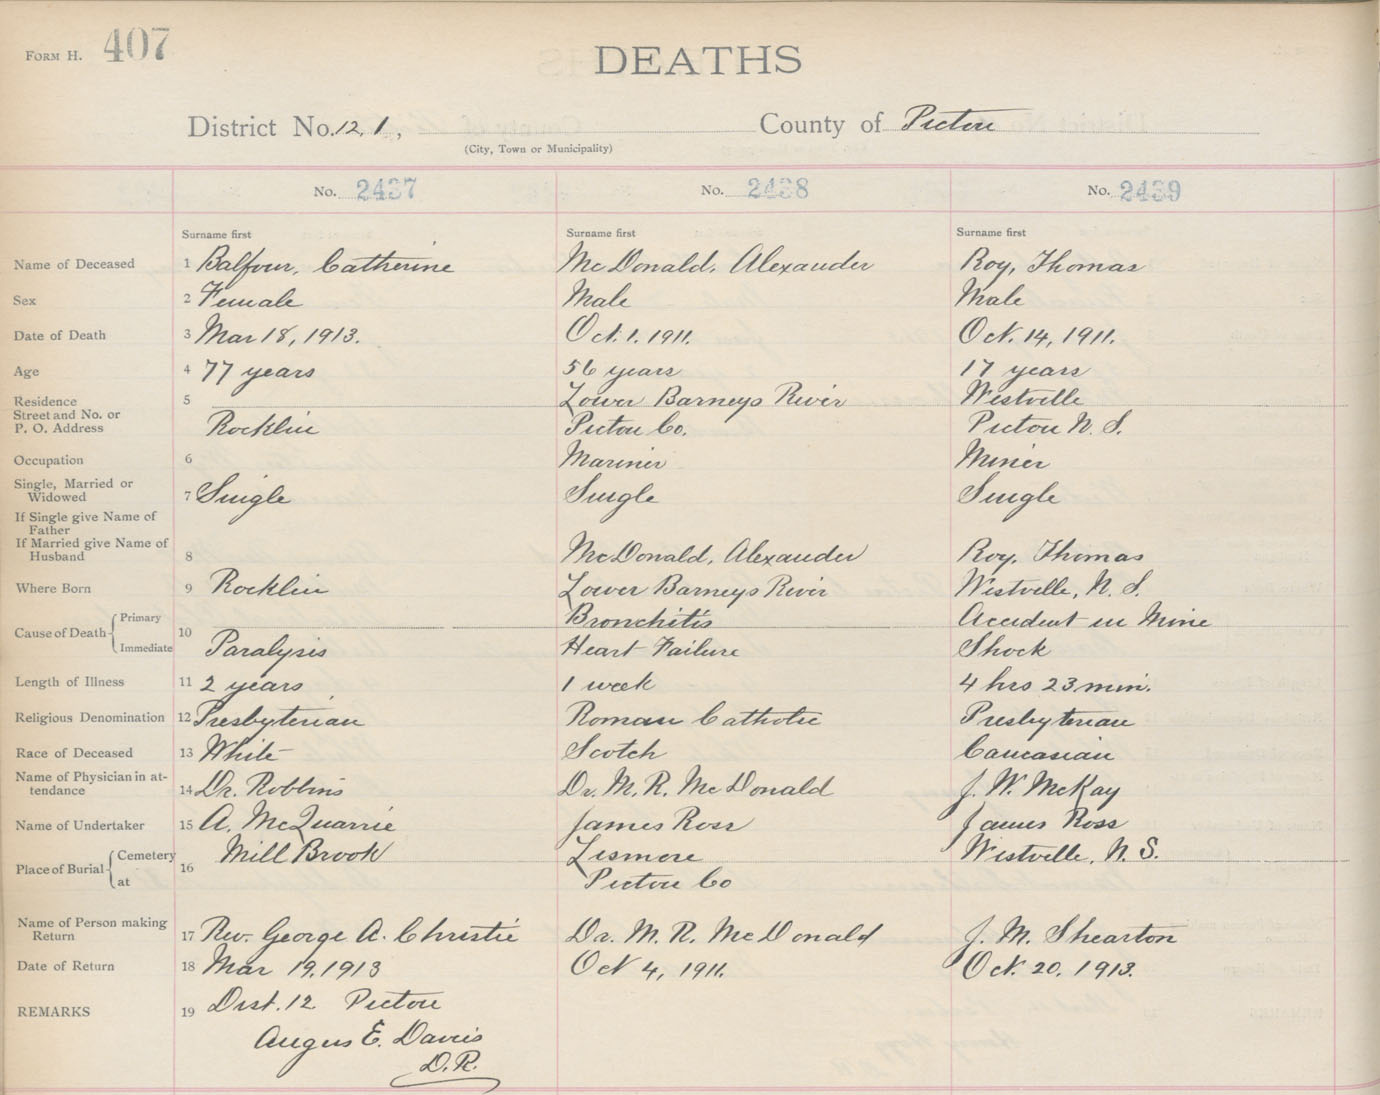 FORM H. 407
DEATHS
District No. 12, 1, County of Pictou
(City, Town or Municipality)
No. 2437 No. 2438 No. 2439
Surname first Surname first Surname first
Name of Deceased 1 Balfour, Catherine McDonald, Alexander Roy, Thomas
Sex 2 Female Male Male
Date of Death 3 Mar 18, 1913. Oct. 1. 1911. Oct. 14, 1911.
Age 4 77 years 56 years 17 years
Residence 5 Lower Barneys River Westville
Street and No. or
P. O. Address Rocklin Pictou Co. Pictou N. S.
Occupation 6 Mariner Miner
Single, Married or
Widowed 7 Single Single Single
If Single give Name of
Father
If Married give Name of
Husband 8 McDonald, Alexander Roy, Thomas
Where Born 9 Rocklin Lower Barneys River Westville, N. S.
Cause of Death Primary 10 Bronchitis Accident in Mine
Immediate Paralysis Heart Failure Shock
Length of Illness 11 2 years 1 week 4 hrs 23 min.
Religious Denomination 12 Presbyterian Roman Catholic Presbyterian
Race of Deceased 13 White Scotch Caucasian
Name of Physician in at-
tendance 14 Dr. Robbins Dr. M. R. McDonald J. W. McKay
Name of Undertaker 15 A. McQuarrie James Ross James Ross
Place of Burial Cemetery 16 Mill Brook Lismore Westville, N. S.
at Pictou Co
Name of Person making
Return 17 Rev. George A. Christie Dr. M. R. McDonald J. M. Shearton
Date of Return 18 Mar 19, 1913 Oct 4, 1911. Oct. 20. 1913.
REMARKS 19 Dist. 12 Pictou
Angus E. Davis
D.R.